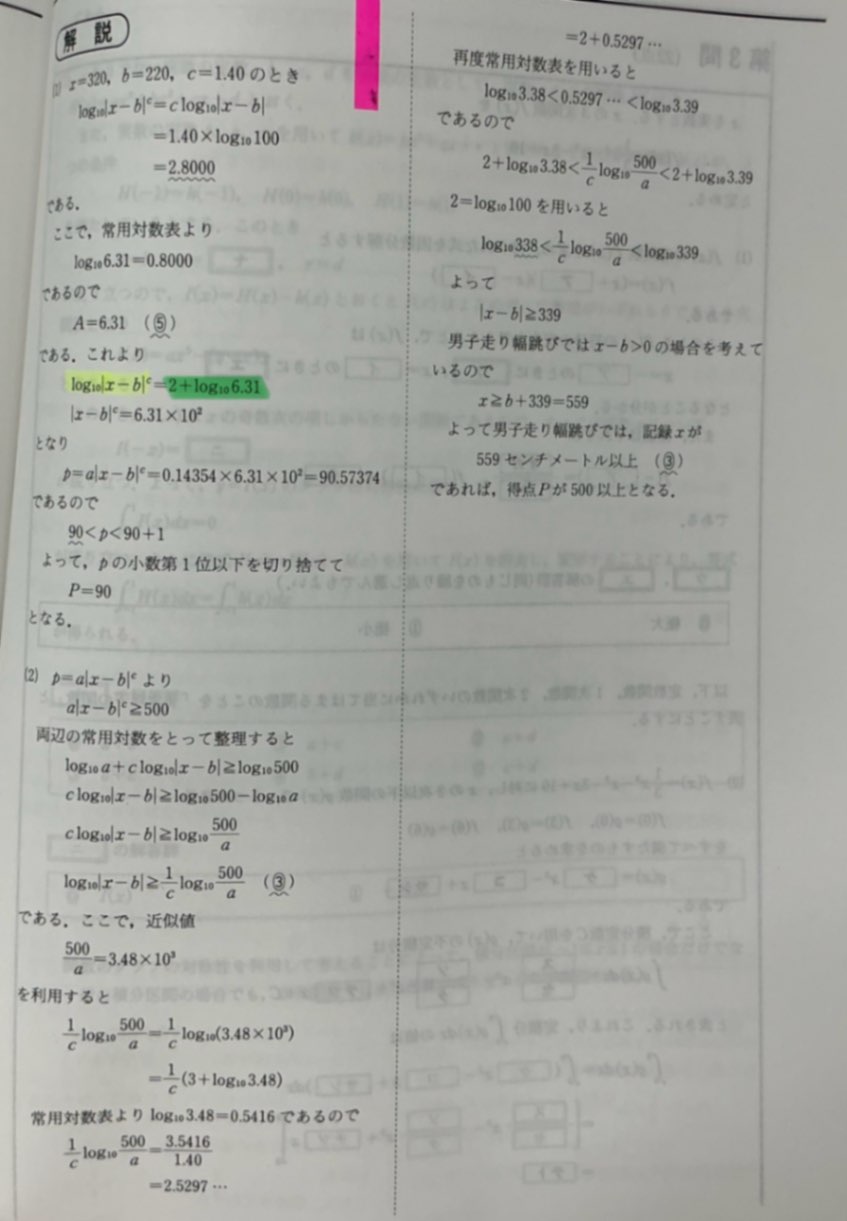 解説
(1) x=320, b=220, c=1.40 のとき
log₁₀|x−b|ᶜ=c log₁₀|x−b|
=1.40×log₁₀100
=2.8000
である.
ここで，常用対数表より
log₁₀6.31=0.8000
であるので
A=6.31 (⑤)
である．これより
log₁₀|x−b|ᶜ=2+log₁₀6.31
|x−b|ᶜ=6.31×10²
となり
p=a|x−b|ᶜ=0.14354×6.31×10²=90.57374
であるので
90<p<90+1
よって，pの小数第1位以下を切り捨てて
P=90
となる.
(2) p=a|x−b|ᶜ より
a|x−b|ᶜ≧500
両辺の常用対数をとって整理すると
log₁₀a+c log₁₀|x−b|≧log₁₀500
c log₁₀|x−b|≧log₁₀500−log₁₀a
c log₁₀|x−b|≧log₁₀ 500/a
log₁₀|x−b|≧1/c log₁₀ 500/a (③)
である．ここで，近似値
500/a=3.48×10³
を利用すると
1/c log₁₀ 500/a=1/c log₁₀(3.48×10³)
=1/c(3+log₁₀3.48)
常用対数表より log₁₀3.48=0.5416 であるので
1/c log₁₀ 500/a=3.5416/1.40
=2.5297…
=2+0.5297…
再度常用対数表を用いると
log₁₀3.38<0.5297…<log₁₀3.39
であるので
2+log₁₀3.38<1/c log₁₀ 500/a<2+log₁₀3.39
2=log₁₀100 を用いると
log₁₀338<1/c log₁₀ 500/a<log₁₀339
よって
|x−b|≧339
男子走り幅跳びでは x−b>0 の場合を考えて
いるので
x≧b+339=559
よって男子走り幅跳びでは，記録xが
559 センチメートル以上 (③)
であれば，得点Pが500以上となる．